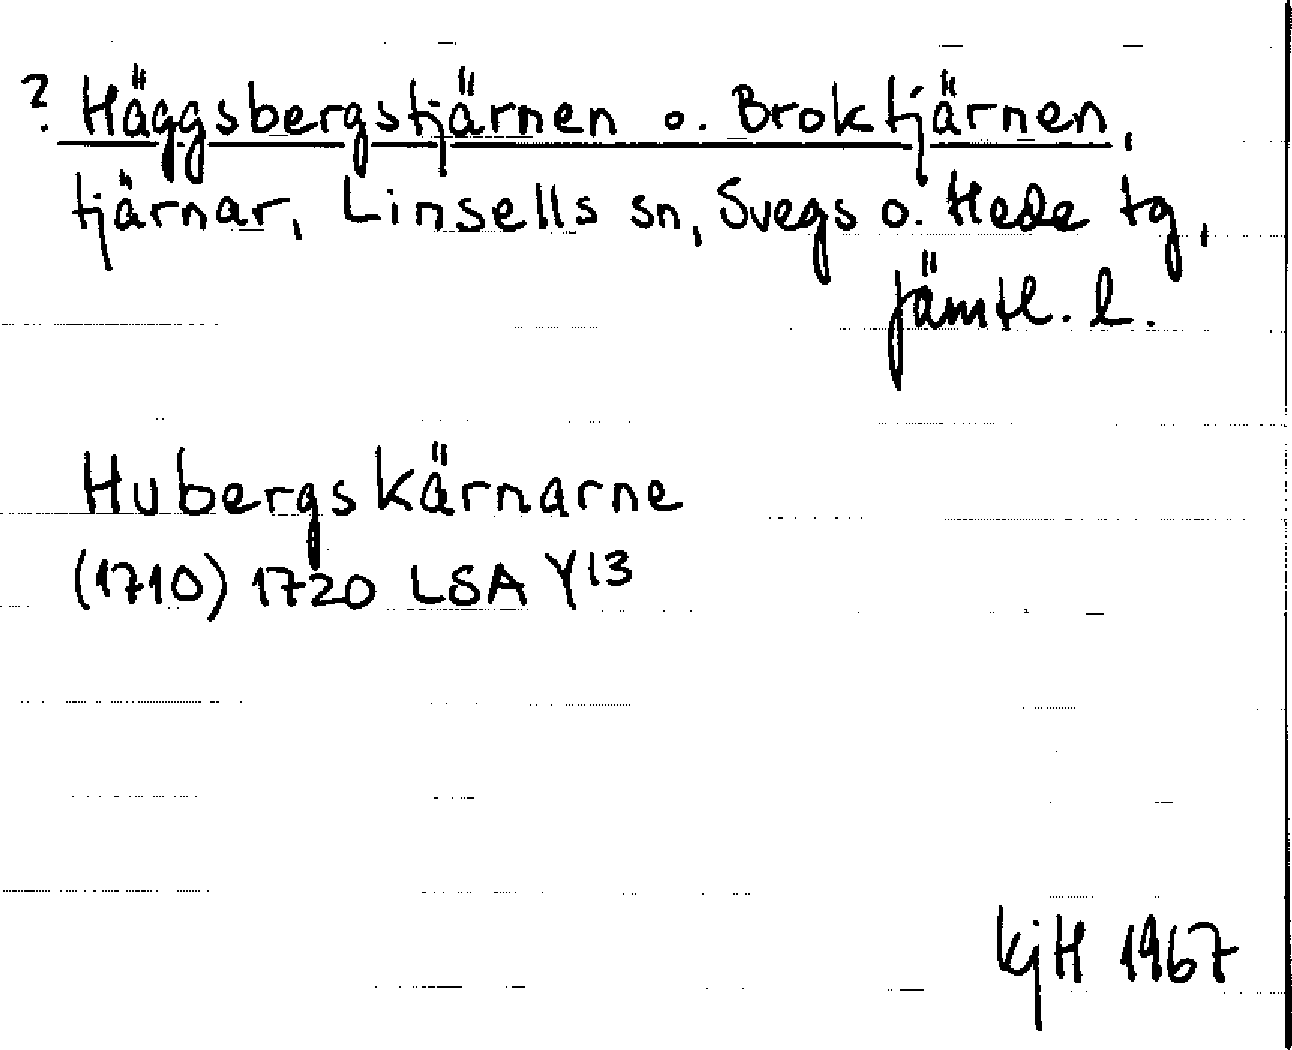 ? Häggsbergstjärnen o. Broktjärnen,
tjärnar, Linsells sn, Svegs o. Hede tg,
Jämtl. l.
Hubergskärnarne
(1710) 1720 LSA Y13
KjH 1967